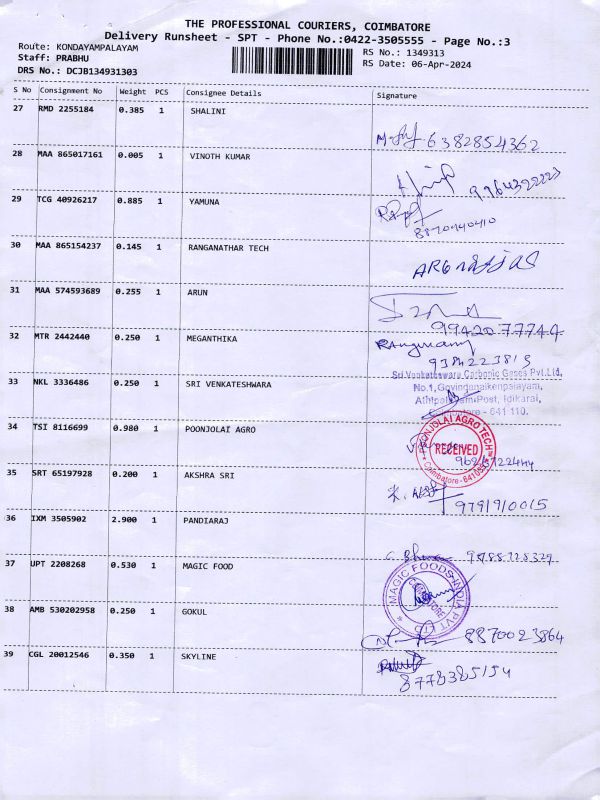 THE PROFESSIONAL COURIERS, COIMBATORE
Delivery Runsheet - SPT - Phone No.:0422-3505555 - Page No.:3
Route: KONDAYAMPALAYAM
Staff: PRABHU
DRS No.: DCJB134931303
RS No.: 1349313
RS Date: 06-Apr-2024
S No Consignment No Weight PCS Consignee Details Signature
27 RMD 2255184 0.385 1 SHALINI
6382854362
28 MAA 865017161 0.005 1 VINOTH KUMAR
29 TCG 40926217 0.885 1 YAMUNA
8870740410
30 MAA 865154237 0.145 1 RANGANATHAR TECH
31 MAA 574593689 0.255 1 ARUN
9942077744
32 MTR 2442440 0.250 1 MEGANTHIKA
9384223813
33 NKL 3336486 0.250 1 SRI VENKATESHWARA
Sri Venkateswara Carbonic Gases Pvt.Ltd,
No.1, Govindanaikenpalayam,
Post, Idikarai,
Coimbatore - 641 110.
34 TSI 8116699 0.980 1 POONJOLAI AGRO
POONJOLAI AGRO TECH
RECEIVED
Coimbatore
35 SRT 65197928 0.200 1 AKSHRA SRI
9791910015
36 IXM 3505902 2.900 1 PANDIARAJ
37 UPT 2208268 0.530 1 MAGIC FOOD
MAGIC FOODS INDIA PVT LTD
COIMBATORE
38 AMB 530202958 0.250 1 GOKUL
8870023864
39 CGL 20012546 0.350 1 SKYLINE
8778385154